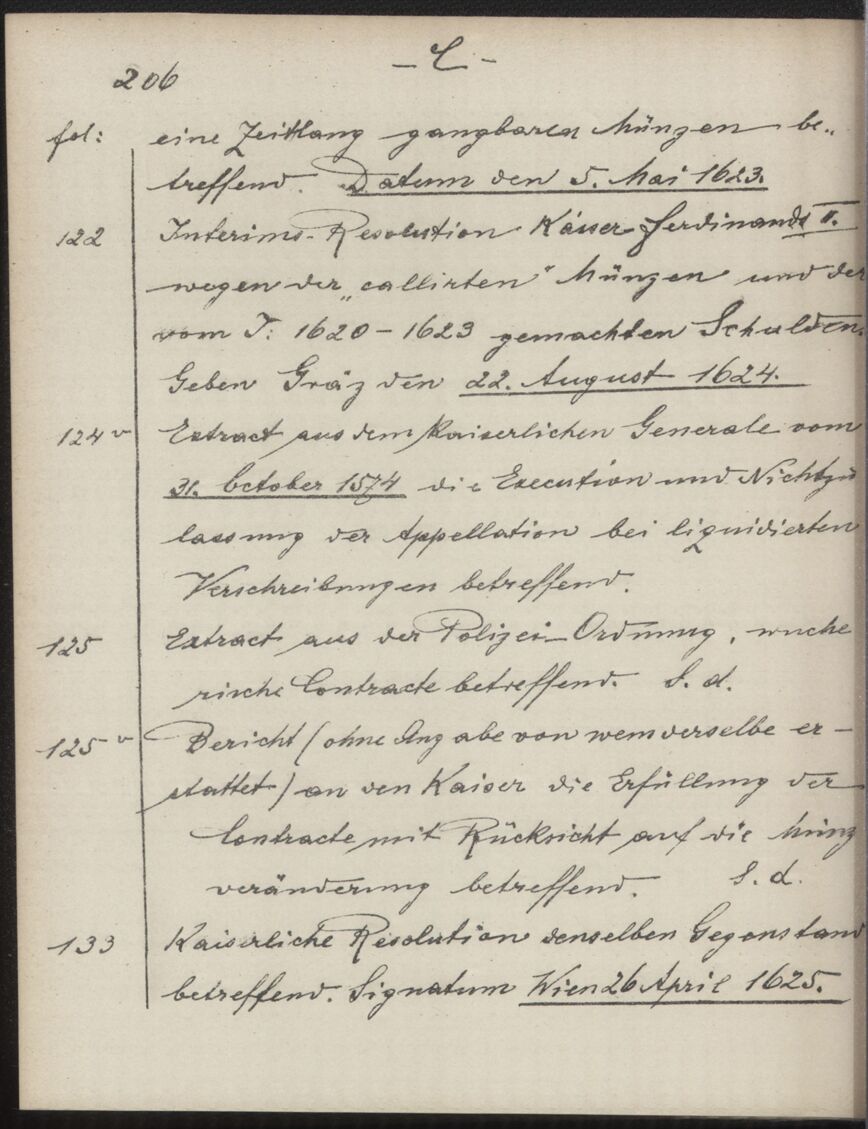 206
- L -
fol: eine Zeitlang gangbaren Münzen be„
treffend. Datum den 5. Mai 1623.
122 Interims-Resolution Kaiser Ferdinands II.
wegen der „callirten" Münzen und der
vom J: 1620-1623 gemachten Schulden.
Geben Gräz den 22. August 1624.
124v Extract aus dem kaiserlichen Generale vom
31. October 1574 die Execution und Nichtzu
lassung der Appellation bei liquidierten
Verschreibungen betreffend.
125 Extract aus der Polizei-Ordnung, wuche
rische Contracte betreffend. S. d.
125v Bericht (ohne Angabe von wem derselbe er-
stattet) an den Kaiser die Erfüllung der
Contracte mit Rücksicht auf die Münz
veränderung betreffend. S. d.
133 Kaiserliche Resolution denselben Gegenstand
betreffend. Signatum Wien 26 April 1625.